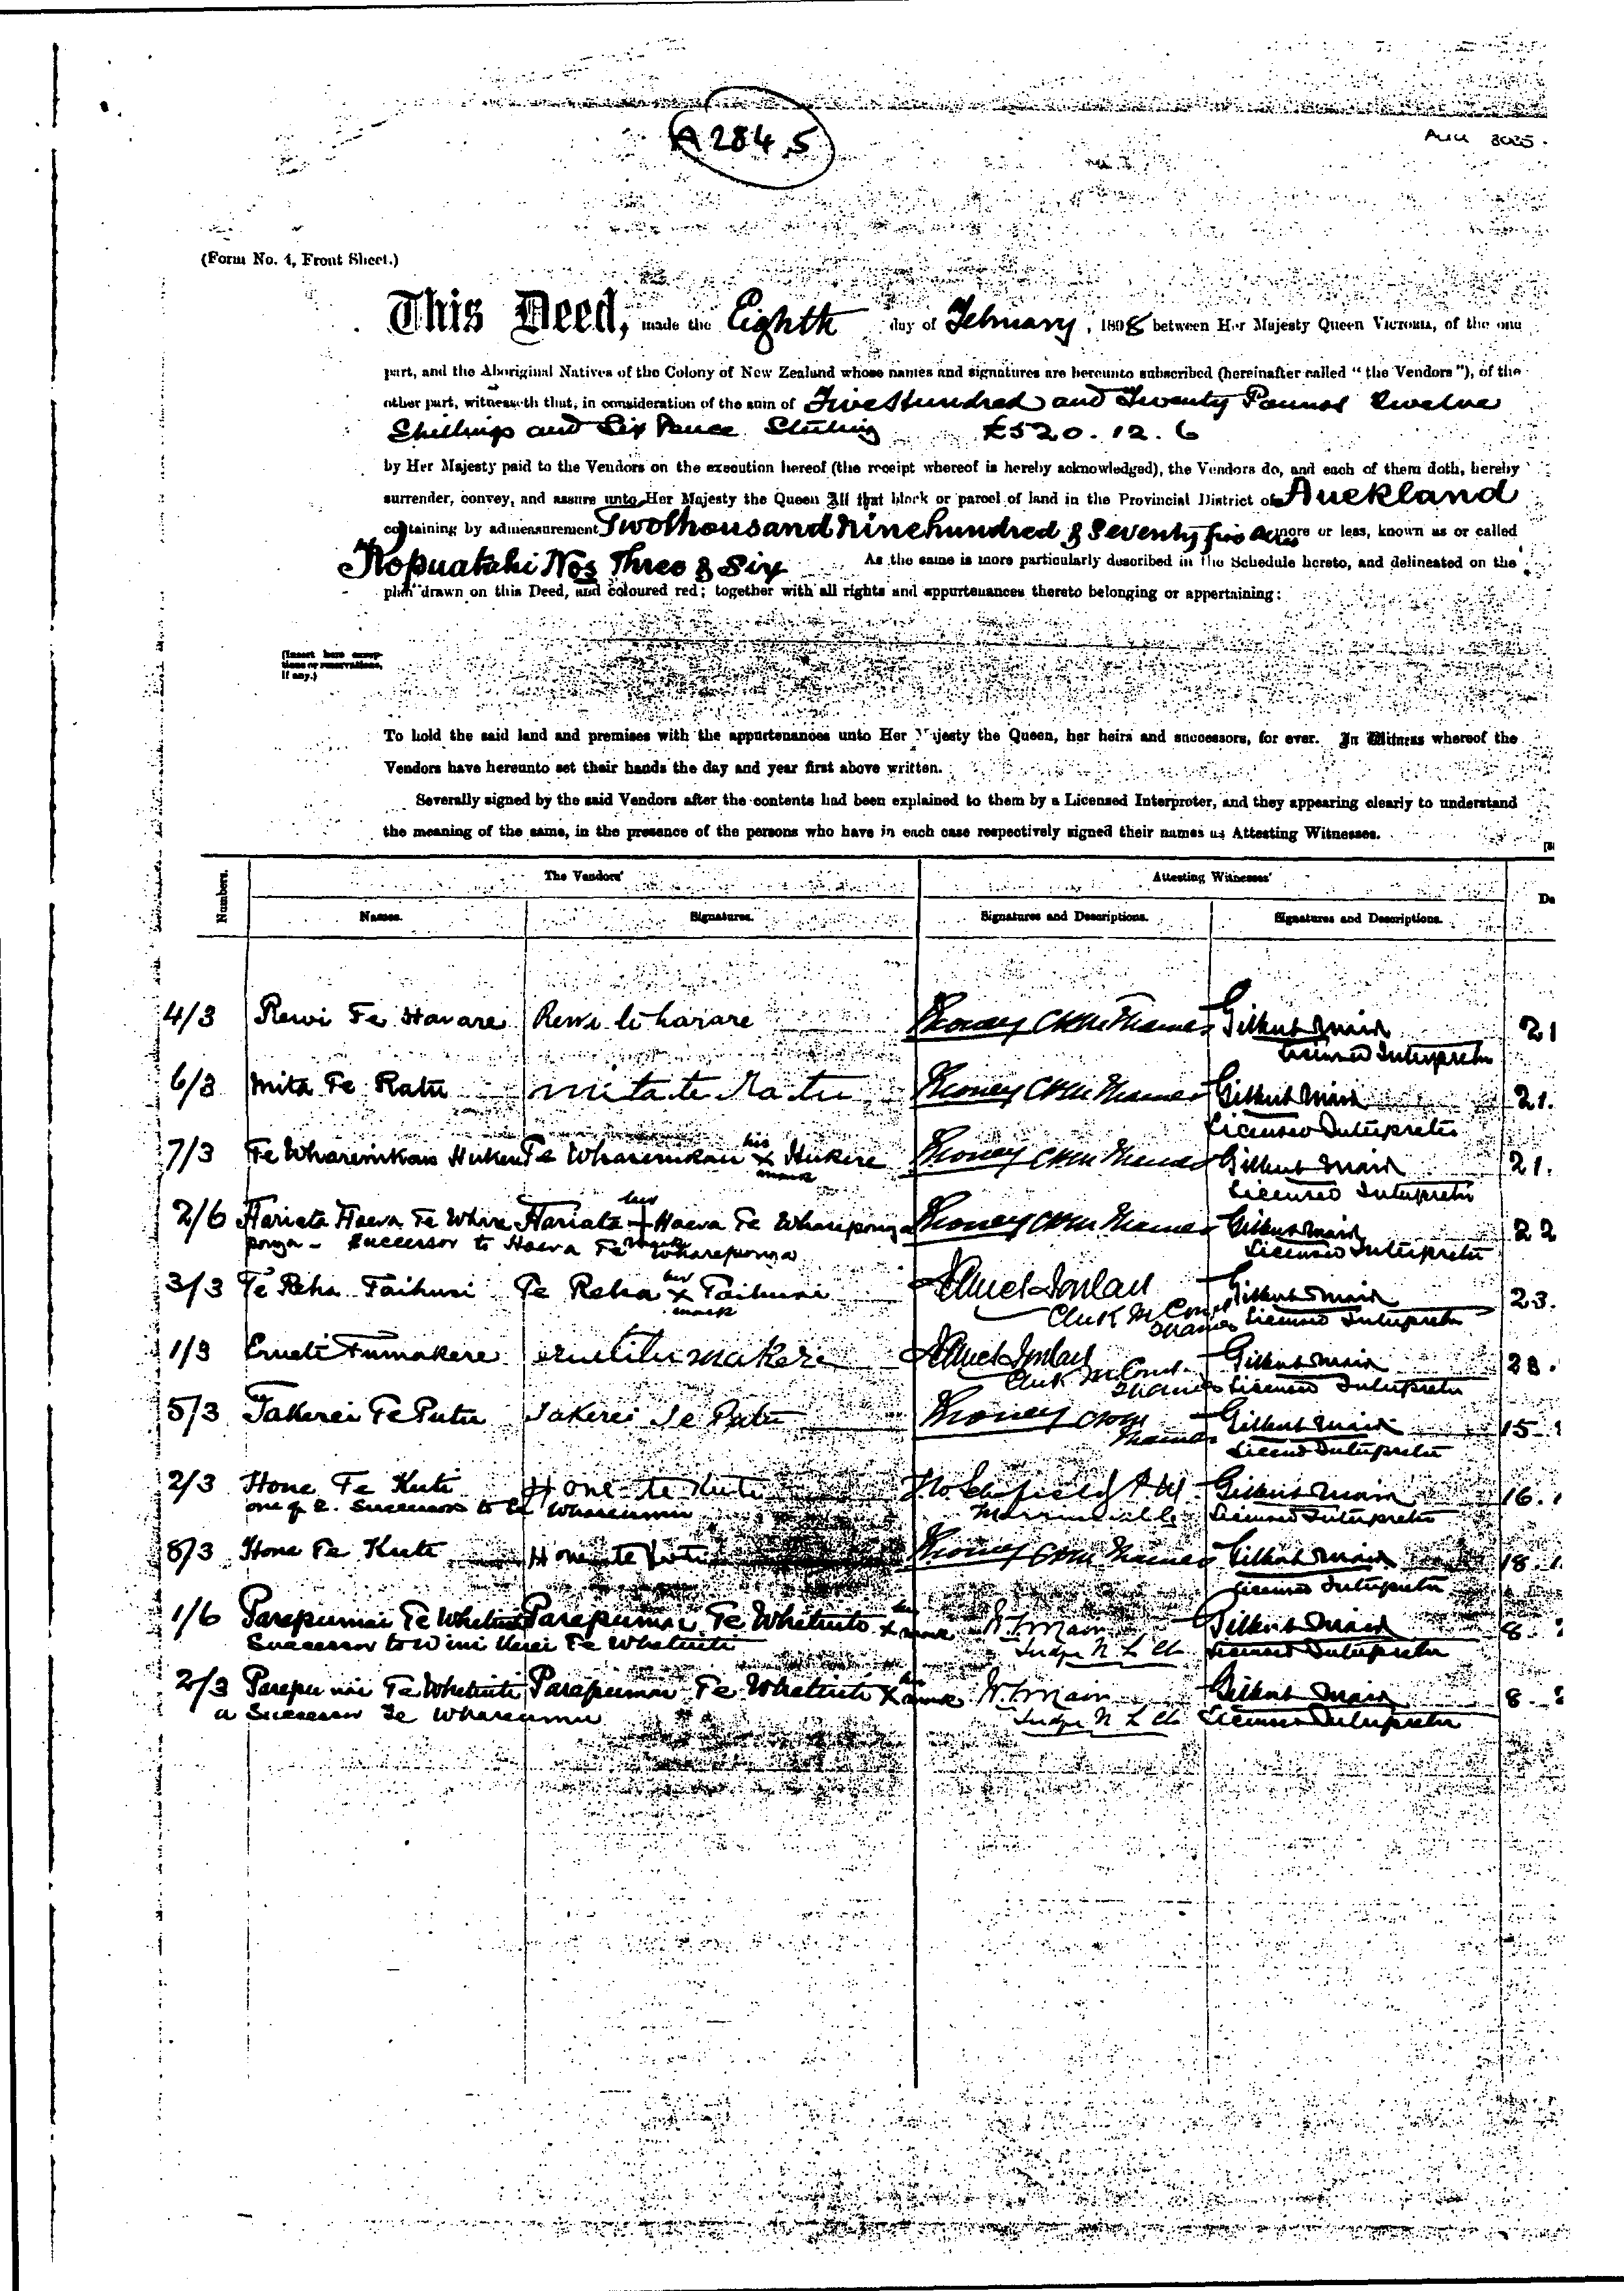 A2845
(Form No. 4, Front Sheet.)
This Deed, made the Eighth day of February, 1898 between Her Majesty Queen Victoria, of the one
part, and the Aboriginal Natives of the Colony of New Zealand whose names and signatures are hereunto subscribed (hereinafter called "the Vendors"), of the
other part, witnesseth that, in consideration of the sum of Five Hundred and Twenty Pounds Twelve
Shillings and Six Pence Sterling £520.12.6
by Her Majesty paid to the Vendors on the execution hereof (the receipt whereof is hereby acknowledged), the Vendors do, and each of them doth, hereby
surrender, convey, and assure unto Her Majesty the Queen All that block or parcel of land in the Provincial District of Auckland
containing by admeasurement Two thousand nine hundred & Seventy five acres more or less, known as or called
Kopuatahi Nos Three & Six As the same is more particularly described in the Schedule hereto, and delineated on the
plan drawn on this Deed, and coloured red; together with all rights and appurtenances thereto belonging or appertaining:
(Insert here exceptions or reservations, if any.)
To hold the said land and premises with the appurtenances unto Her Majesty the Queen, her heirs and successors, for ever. In Witness whereof the
Vendors have hereunto set their hands the day and year first above written.
Severally signed by the said Vendors after the contents had been explained to them by a Licensed Interpreter, and they appearing clearly to understand
the meaning of the same, in the presence of the persons who have in each case respectively signed their names as Attesting Witnesses.
Numbers. The Vendors' Attesting Witnesses'
Names. Signatures. Signatures and Descriptions. Signatures and Descriptions. Da
4/3 Rewi Te Harare Rewi te harare Thames Gilbert Mair 21
Licensed Interpreter
6/3 Mita Te Ratu mita te Ratu Thames Gilbert Mair 21.
Licensed Interpreter
7/3 Te Wharemkau Hukere Te Wharemkau his x mark Hukere Thames Gilbert Mair 21.
Licensed Interpreter
2/6 Hariata Haera Te Whareponga Hariata her + mark Haera Te Whareponga Thames Gilbert Mair 22
Successor to Haera Te Whareponga Licensed Interpreter
3/3 Te Reha Taihuri Te Reha her x mark Taihuri Gilbert Mair 23.
Clerk M Court Thames Licensed Interpreter
1/3 Erueti Tumakere erueti tumakere Gilbert Mair 23.
Clerk M Court Thames Licensed Interpreter
5/3 Takerei Te Putu Takerei Te Putu Thames Gilbert Mair 15
Licensed Interpreter
2/3 Hone Te Kuti Hone te Kuti Gilbert Mair 16.
one of 2. Successors to Te Whareumu Licensed Interpreter
8/3 Hone Te Kuti Hone te Kuti Thames Gilbert Mair 18.
Licensed Interpreter
1/6 Parapumai Te Whetuiti Parapumai Te Whetuiti her x mark Gilbert Mair 8.
Successor to Te Whetuiti Judge N L Ct. Licensed Interpreter
2/3 Parapumai Te Whetuiti Parapumai Te Whetuiti her x mark Gilbert Mair 8.
a Successor Te Whareumu Judge N L Ct. Licensed Interpreter